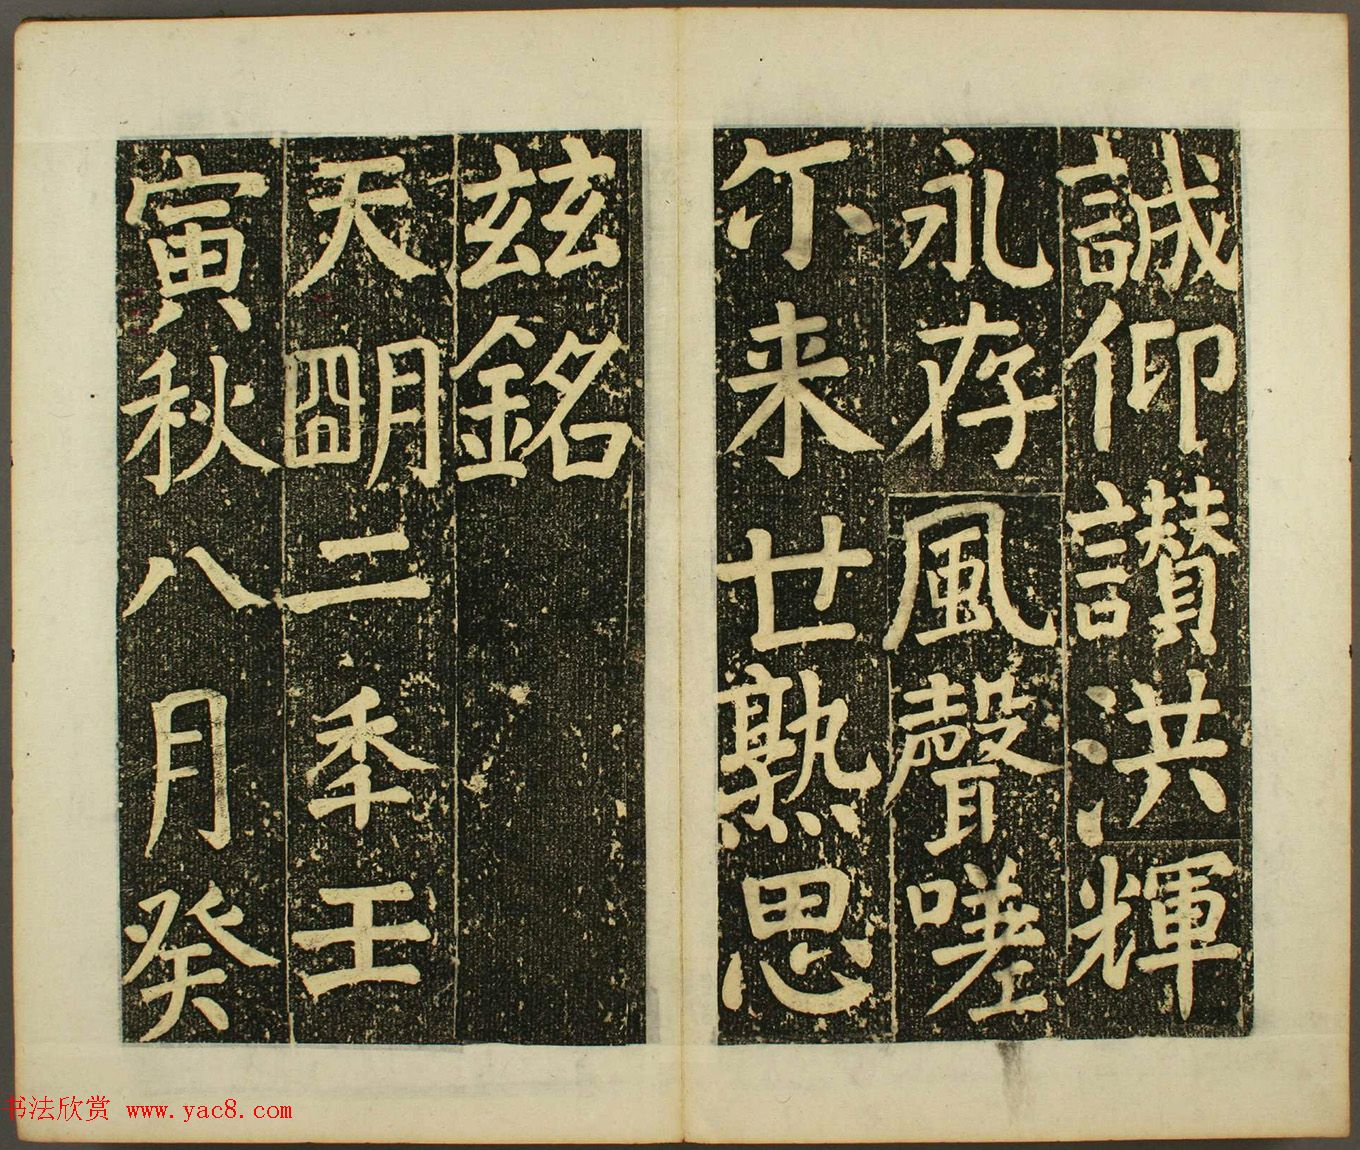 誠仰讃洪輝
永存風聲嗟
尒来世熟思
兹銘
天朙二季壬
寅秋八月癸
书法欣赏 www.yac8.com